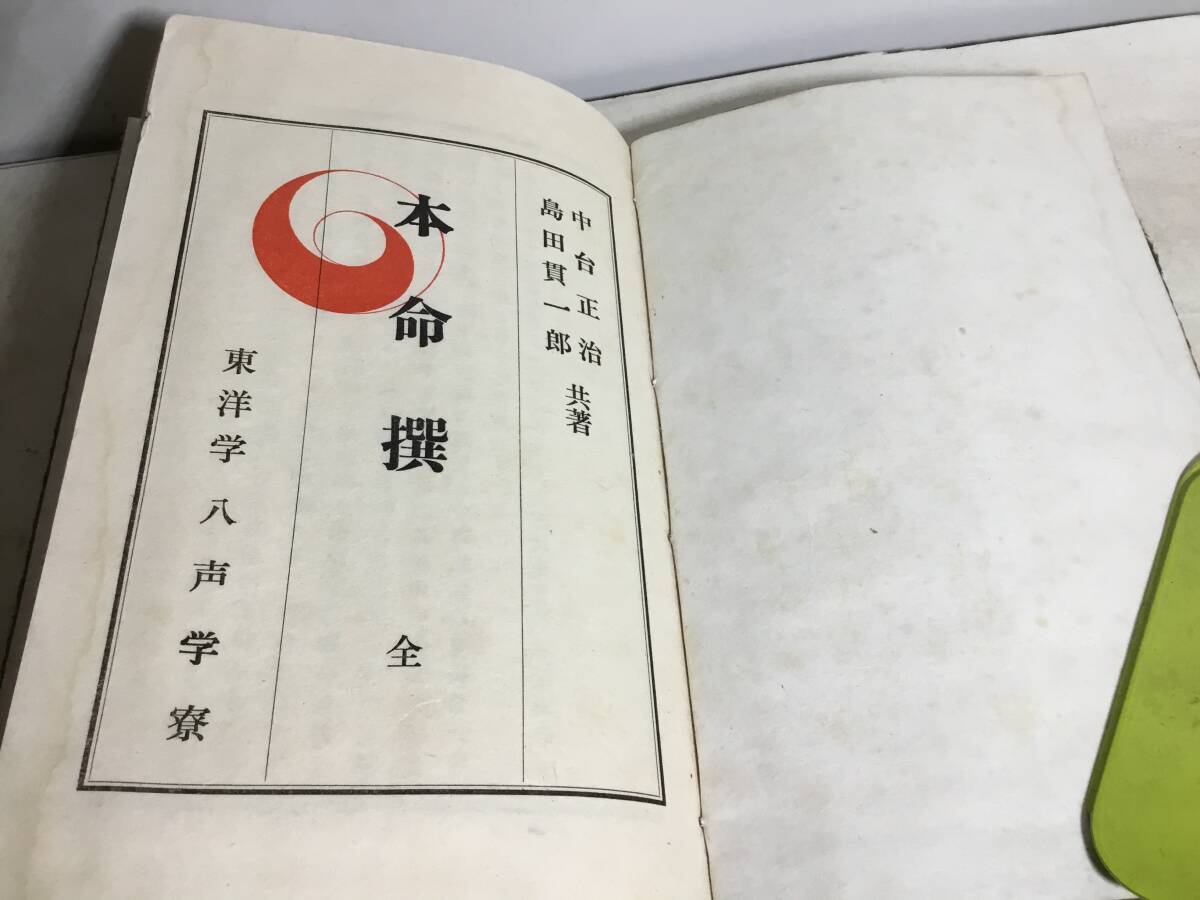 中台正治
島田貫一郎
共著
本命撰 全
東洋学八声学寮